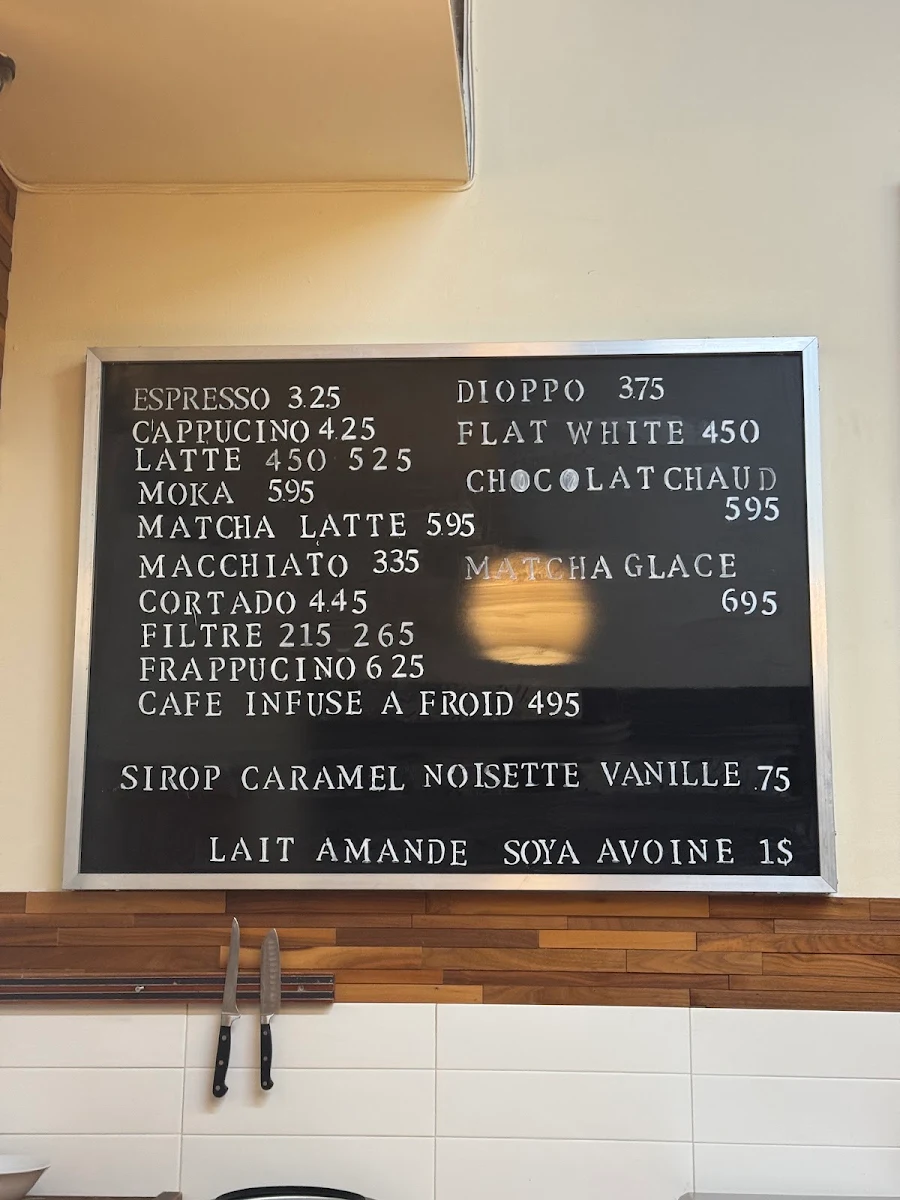 ESPRESSO 3.25
CAPPUCINO 4.25
LATTE 450 525
MOKA 5.95
MATCHA LATTE 5.95
MACCHIATO 335
CORTADO 4.45
FILTRE 215 265
FRAPPUCINO 6 25
CAFE INFUSE A FROID 495
DIOPPO 3.75
FLAT WHITE 450
CHOCOLAT CHAUD
595
MATCHA GLACE
695
SIROP CARAMEL NOISETTE VANILLE .75
LAIT AMANDE SOYA AVOINE 1$